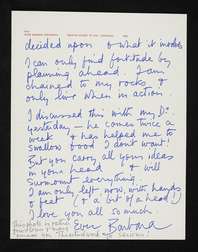 decided upon & what it models
I can only find fortitude by
planning ahead. I am
chained to my rocks &
only live when in action.
I discussed this with my Dr.
yesterday — he comes twice a
week & has helped me to
swallow food I don't want!
But you carry all your ideas
in your head & will
surmount everything.
I am only left now with hands
& feet (& a bit of a head!)
I love you all so much
Ever Barbara
This photo is rather